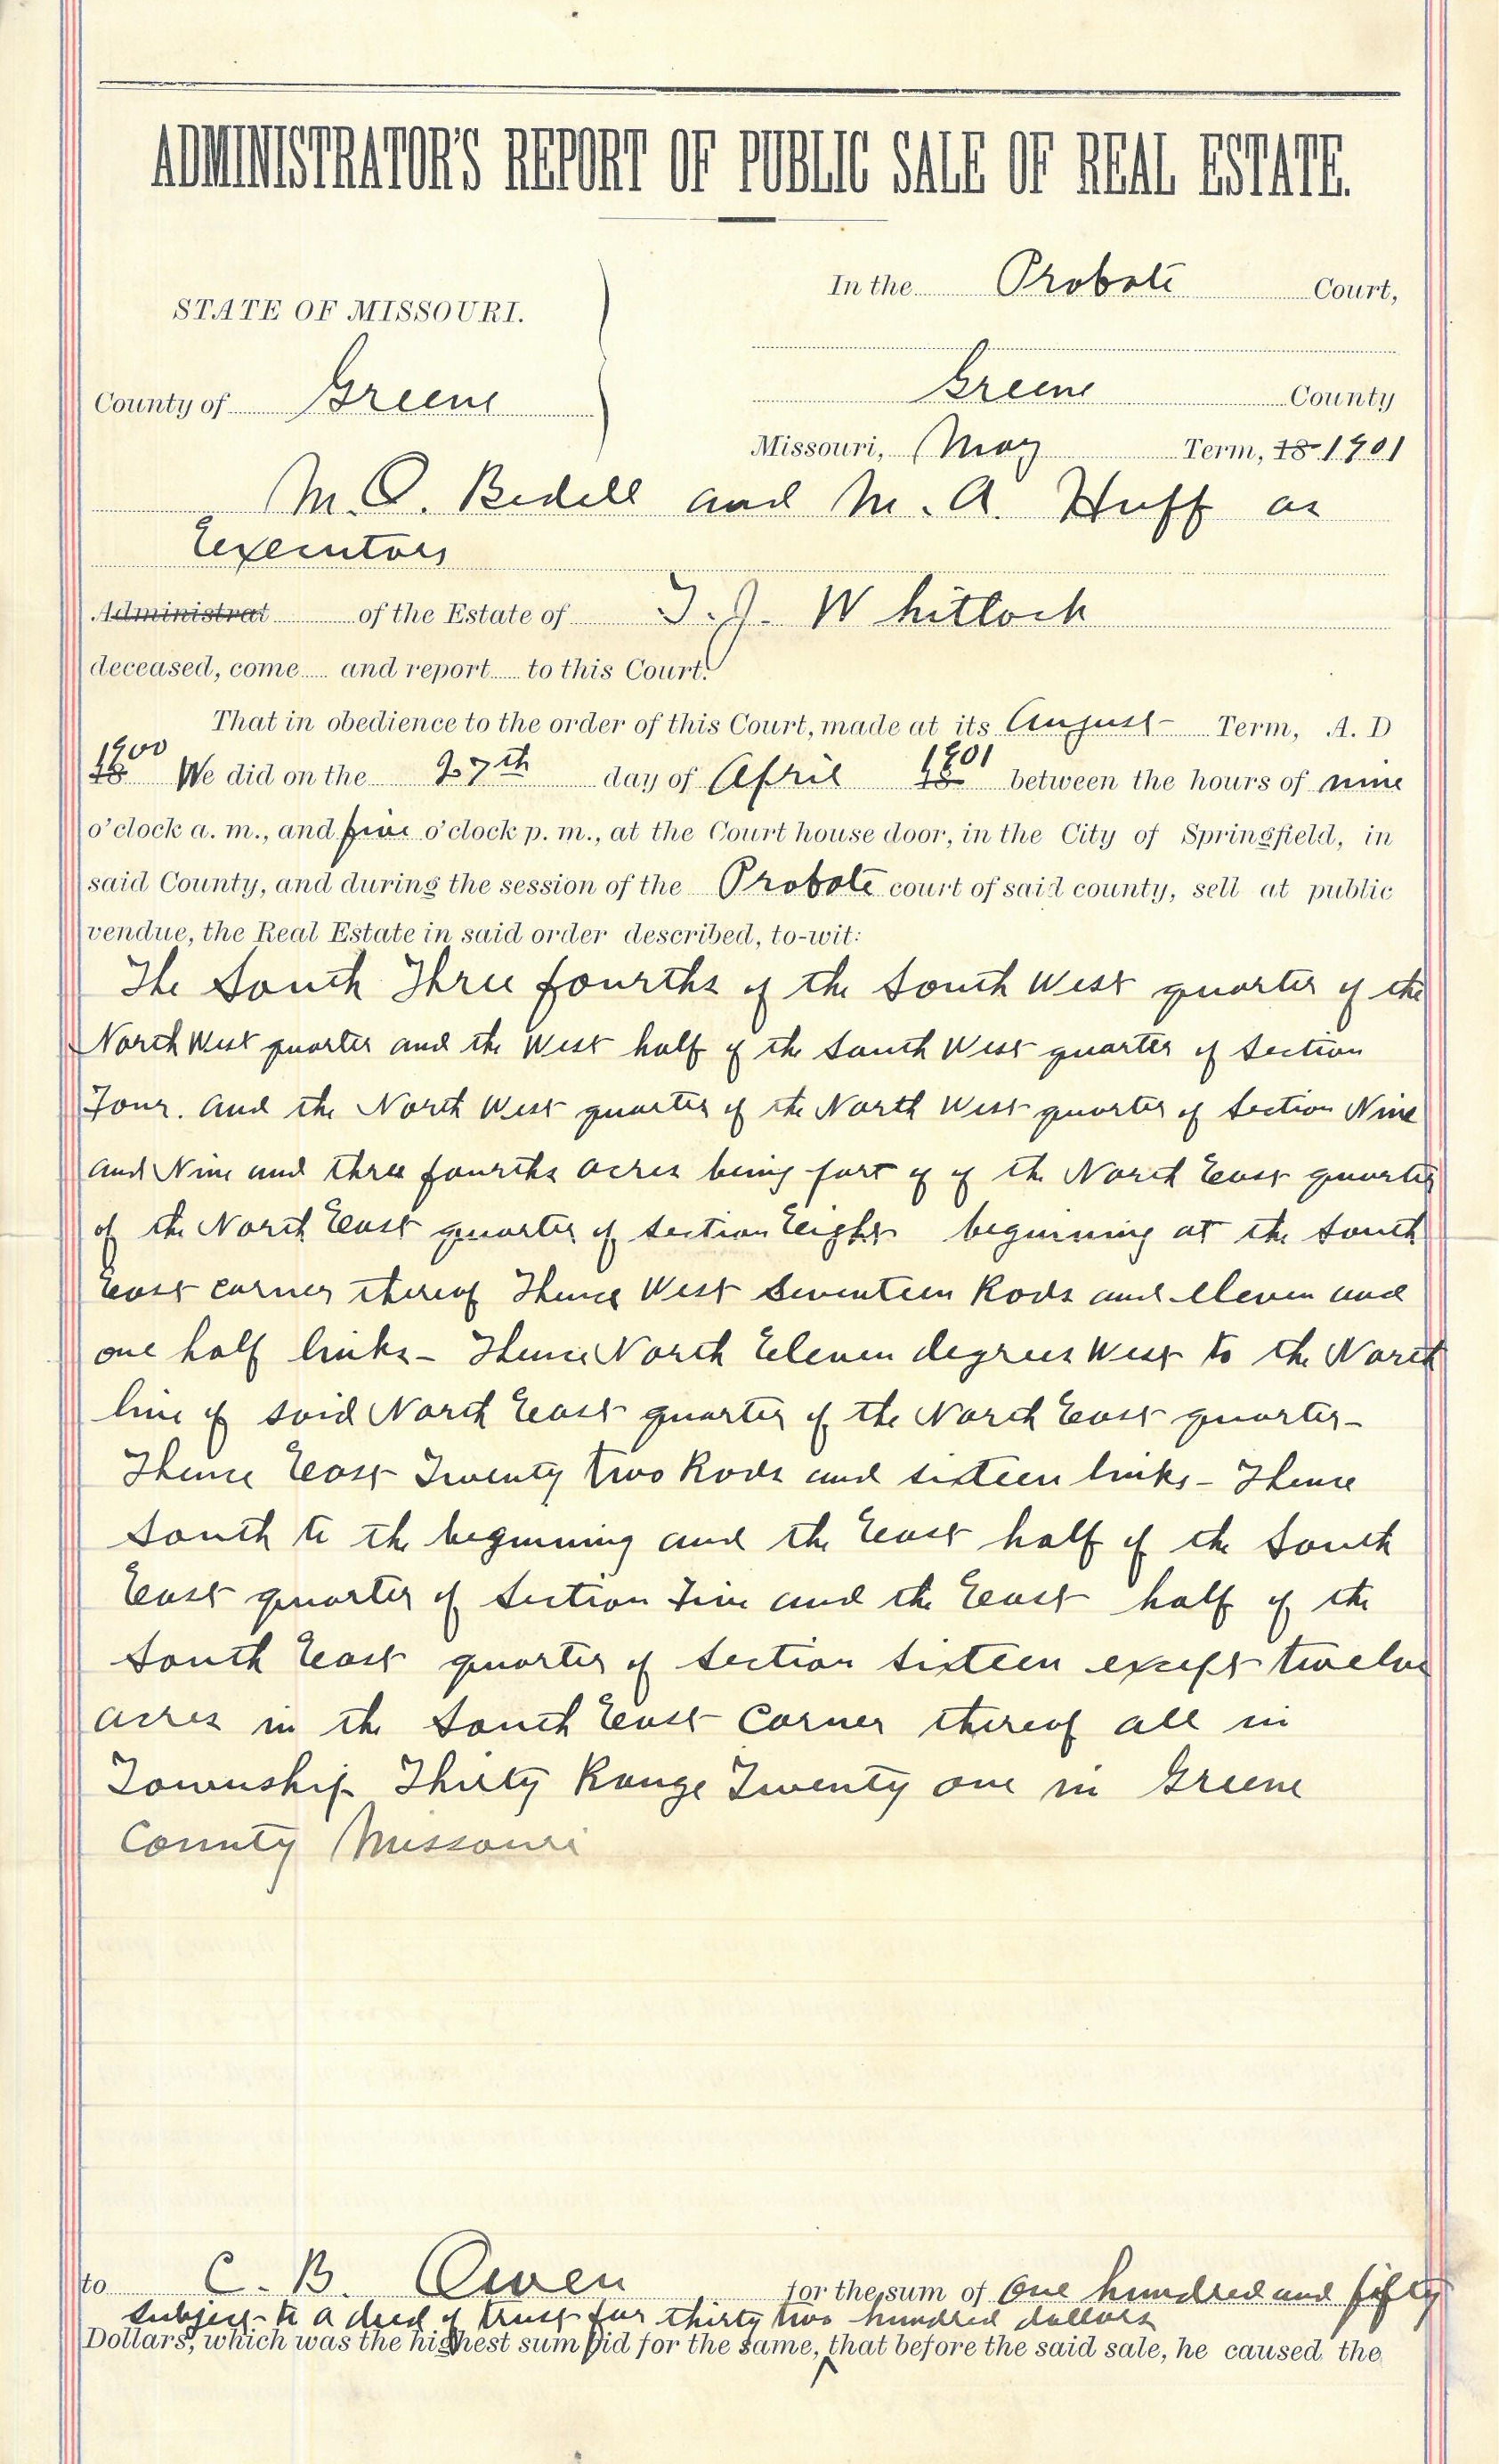 ADMINISTRATOR'S REPORT OF PUBLIC SALE OF REAL ESTATE.
In the Probate Court,
STATE OF MISSOURI.
County of Greene
Greene County
Missouri, May Term, 18 1901
M. O. Bedell and M. A. Huff as
Executors
Administrat of the Estate of T. J. Whitlock
deceased, come and report to this Court.
That in obedience to the order of this Court, made at its August Term, A. D
1900
18 We did on the 27th day of April 18 1901 between the hours of nine
o'clock a. m., and five o'clock p. m., at the Court house door, in the City of Springfield, in
said County, and during the session of the Probate court of said county, sell at public
vendue, the Real Estate in said order described, to-wit:
The South Three fourths of the South West quarter of the
North West quarter and the West half of the South West quarter of Section
Four. and the North West quarter of the North West quarter of Section Nine
and Nine and three fourths acres being part of of the North East quarter
of the North East quarter of section Eight beginning at the South
East corner thereof Thence West Seventeen Rods and eleven and
one half links - Thence North Eleven degrees West to the North
line of said North East quarter of the North East quarter -
Thence East Twenty two Rods and sixteen links - Thence
South to the beginning and the East half of the South
East quarter of Section Five and the East half of the
South East quarter of Section Sixteen except twelve
acres in the South East Corner thereof all in
Township Thirty Range Twenty one in Greene
County Missouri
to C. B. Owen for the sum of One hundred and fifty
subject to a deed of trust for thirty two hundred dollars
Dollars, which was the highest sum bid for the same, that before the said sale, he caused the